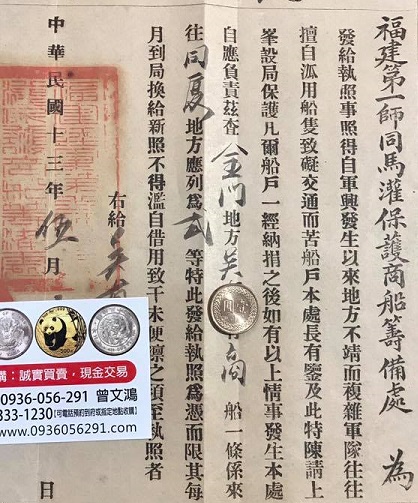 福建第一師同馬灌保護商船籌備處 為
發給執照事照得自軍興發生以來地方不靖而複雜軍隊往往
擅自派用船隻致礙交通而苦船戶本處長有鑒及此特陳請上
峯設局保護凡爾船戶一經納捐之後如有以上情事發生本處
自應負責茲查金門地方吳 有 船一條係來
往同厦地方應列為弍等特此發給執照為憑而限其每
月到局換給新照不得濫自借用致干未便凛之須至執照者
右給吳
中華民國十三年伍月 日
購:誠實買賣,現金交易
0936-056-291 曾文鴻
833-1230(可電話預約到府或指定地點收購)
www.0936056291.com